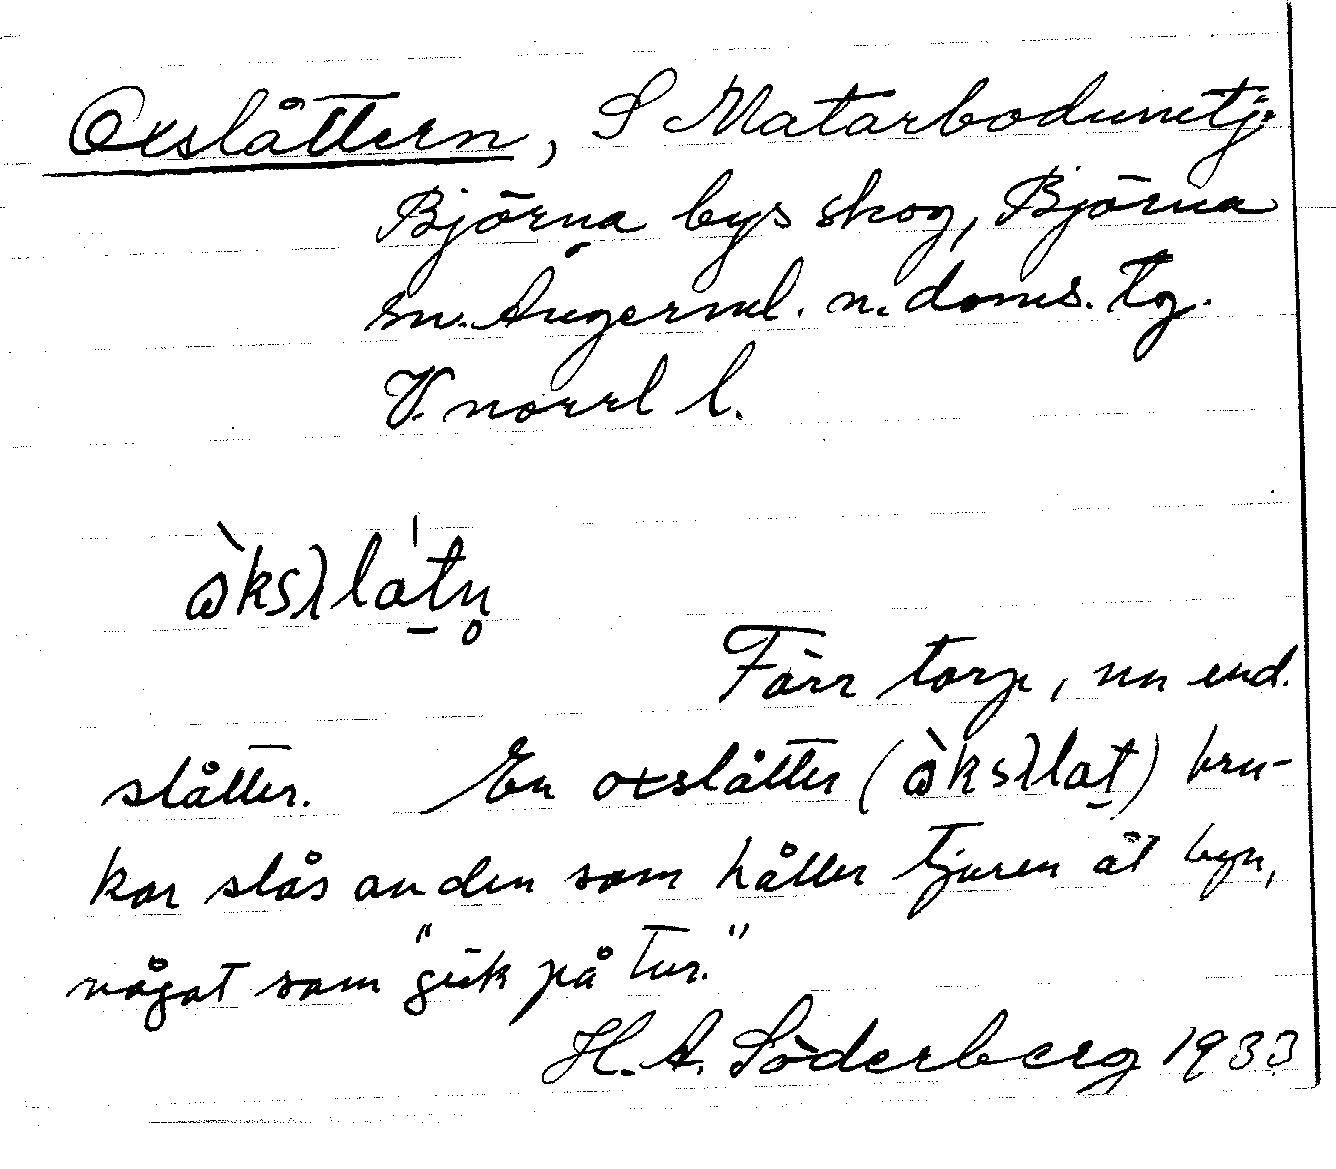 Oxslåttern, S Matarbodumstj.
Björna bys skog, Björna
sn. Ångerml. n. doms. tg.
V. norrl l.
ὼksλlat̠n̥
Förr torp, nu end.
slåtter. En oxslåtter (ὼksλlat̠) bru-
kar slås av den som håller tjuren åt byn,
något som "gick på tur."
H. A. Söderberg 1933